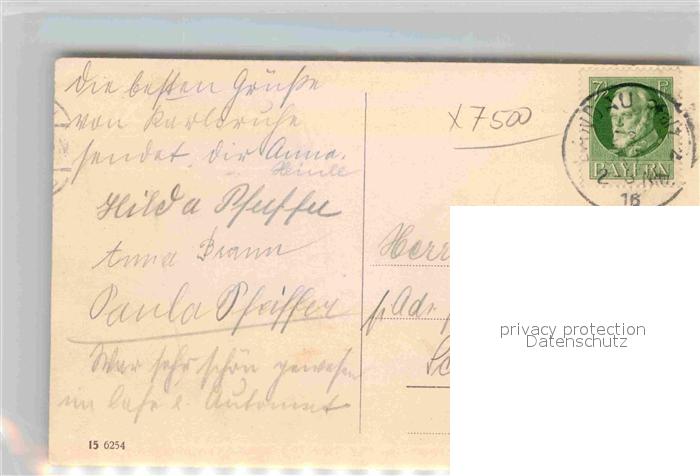 die besten Grüße
von Karlsruhe
sendet dir Anna.
Heinle
Hilda Pfeiffer
Anna Braun
Paula Pfeiffer
War sehr schön gewesen
im Cafe e. Automat
15 6254
x7500
7½ P
BAYERN
16
Herr
p. Adr.
Sc
privacy protection
Datenschutz